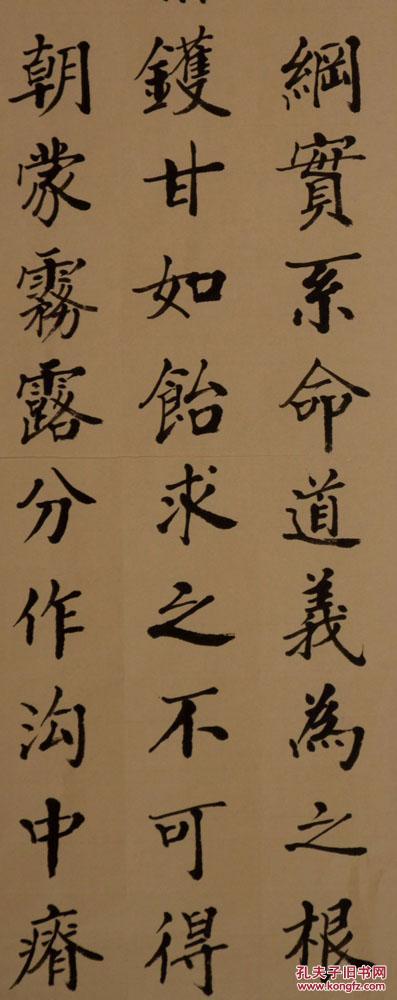 綱實系命道義為之根
鑊甘如飴求之不可得
朝蒙霧露分作沟中瘠
孔夫子旧书网
kongfz.com